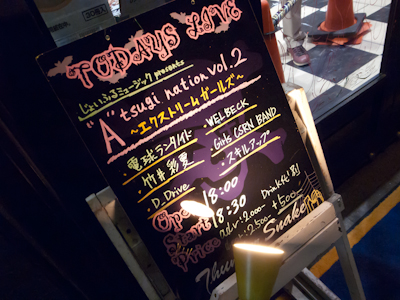 TODAYS LIVE
じょいふるミュージック presents
"A"tsugi nation vol.2
～エクストリームガールズ～
・電球ランタイド ・WELBECK
・竹井 彩夏 ・Girls GSRN BAND
・D_Drive ・スキルアップ
Open 18:00
Start 18:30
Price
2000-
2500- +500
Drink代別
Snake